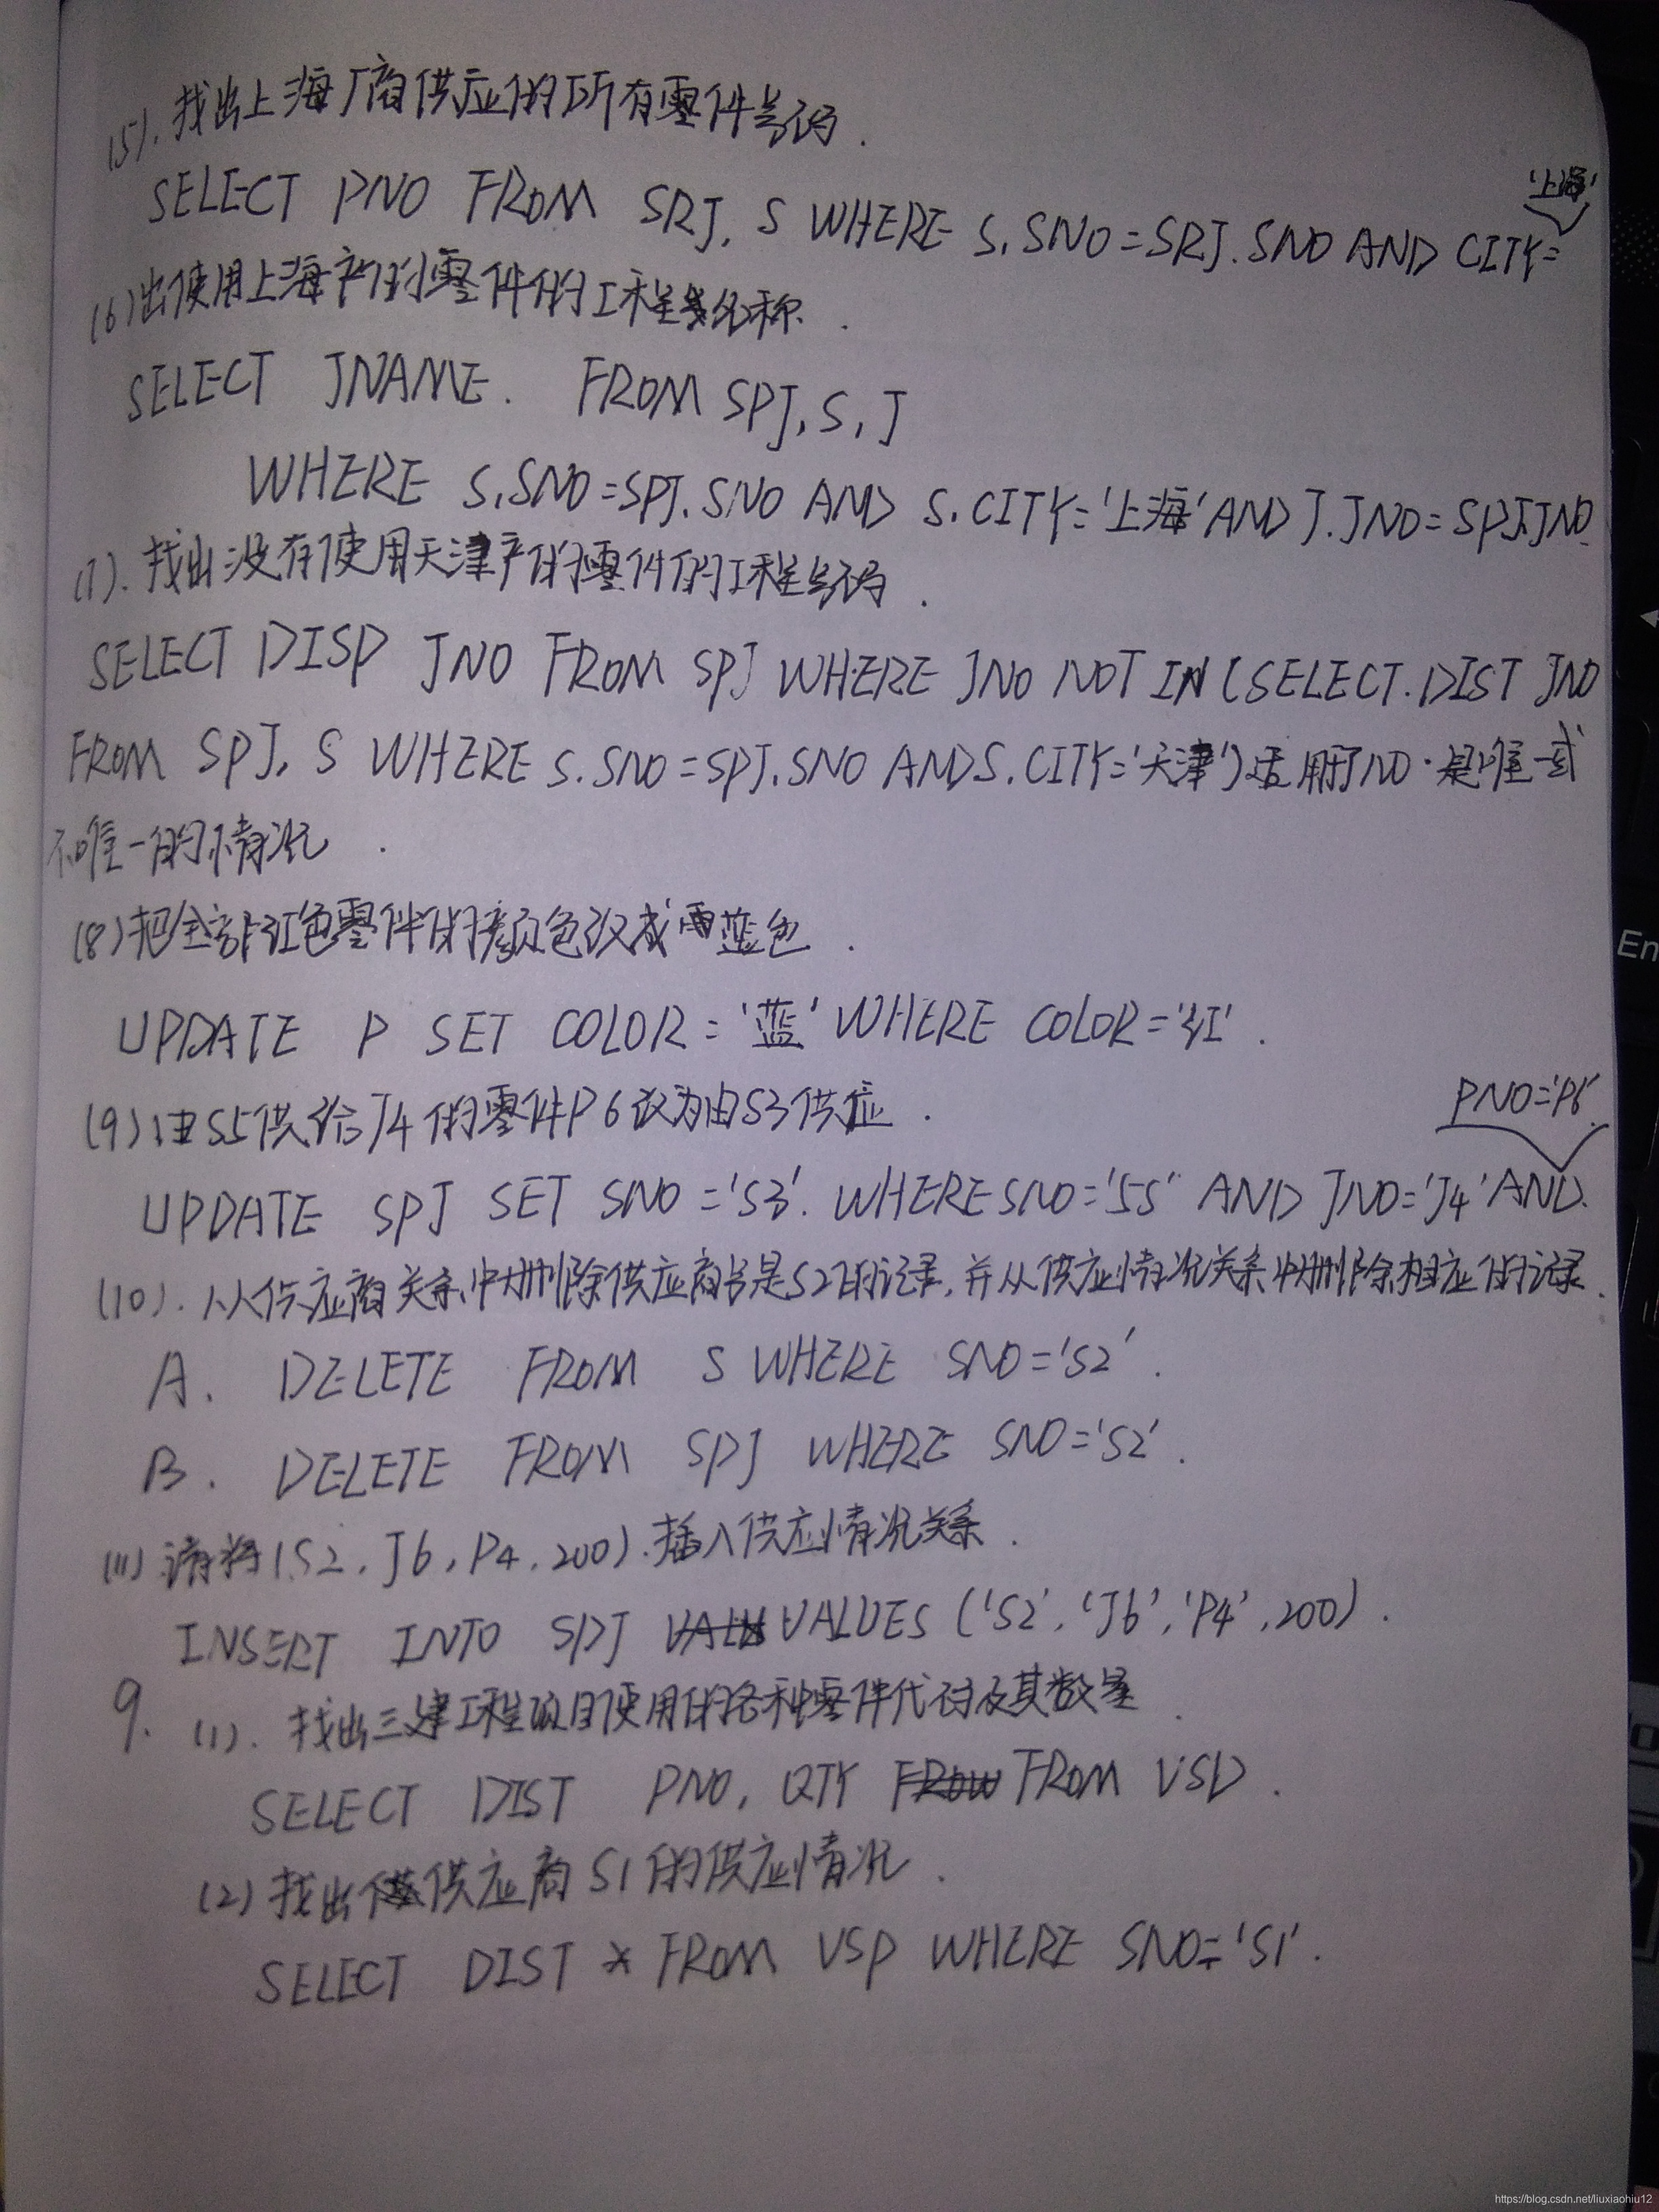 (5).找出上海厂商供应的所有零件号码.
SELECT PNO FROM SRJ, S WHERE S.SNO=SRJ.SNO AND CITY='上海'
(6)出使用上海产的零件的工程名称.
SELECT JNAME. FROM SPJ,S,J
WHERE S.SNO=SPJ.SNO AND S.CITY='上海'AND J.JNO=SPJ.JNO
(7).找出没有使用天津产的零件的工程号码.
SELECT DISP JNO FROM SPJ WHERE JNO NOT IN (SELECT.DIST JNO
FROM SPJ, S WHERE S.SNO=SPJ.SNO AND S.CITY='天津')适用于JNO.是唯一或
不唯一的情况.
(8)把全部红色零件的颜色改成蓝色.
UPDATE P SET COLOR='蓝' WHERE COLOR='红'.
(9)由S5供给J4的零件P6改为由S3供应.
UPDATE SPJ SET SNO='S3'. WHERE SNO='S5' AND JNO='J4'AND PNO='P6'.
(10).从供应商关系中删除供应商号是S2的记录,并从供应情况关系中删除相应的记录.
A. DELETE FROM S WHERE SNO='S2'.
B. DELETE FROM SPJ WHERE SNO='S2'.
(11)请将(S2,J6,P4,200).插入供应情况关系.
INSERT INTO SPJ VALUES ('S2','J6','P4',200).
9. (1).找出三建工程项目使用的各种零件代码及其数量.
SELECT DIST PNO, QTY FROM VSP.
(2)找出供应商S1的供应情况.
SELECT DIST * FROM VSP WHERE SNO='S1'.
En
https://blog.csdn.net/liuxiaohiu12